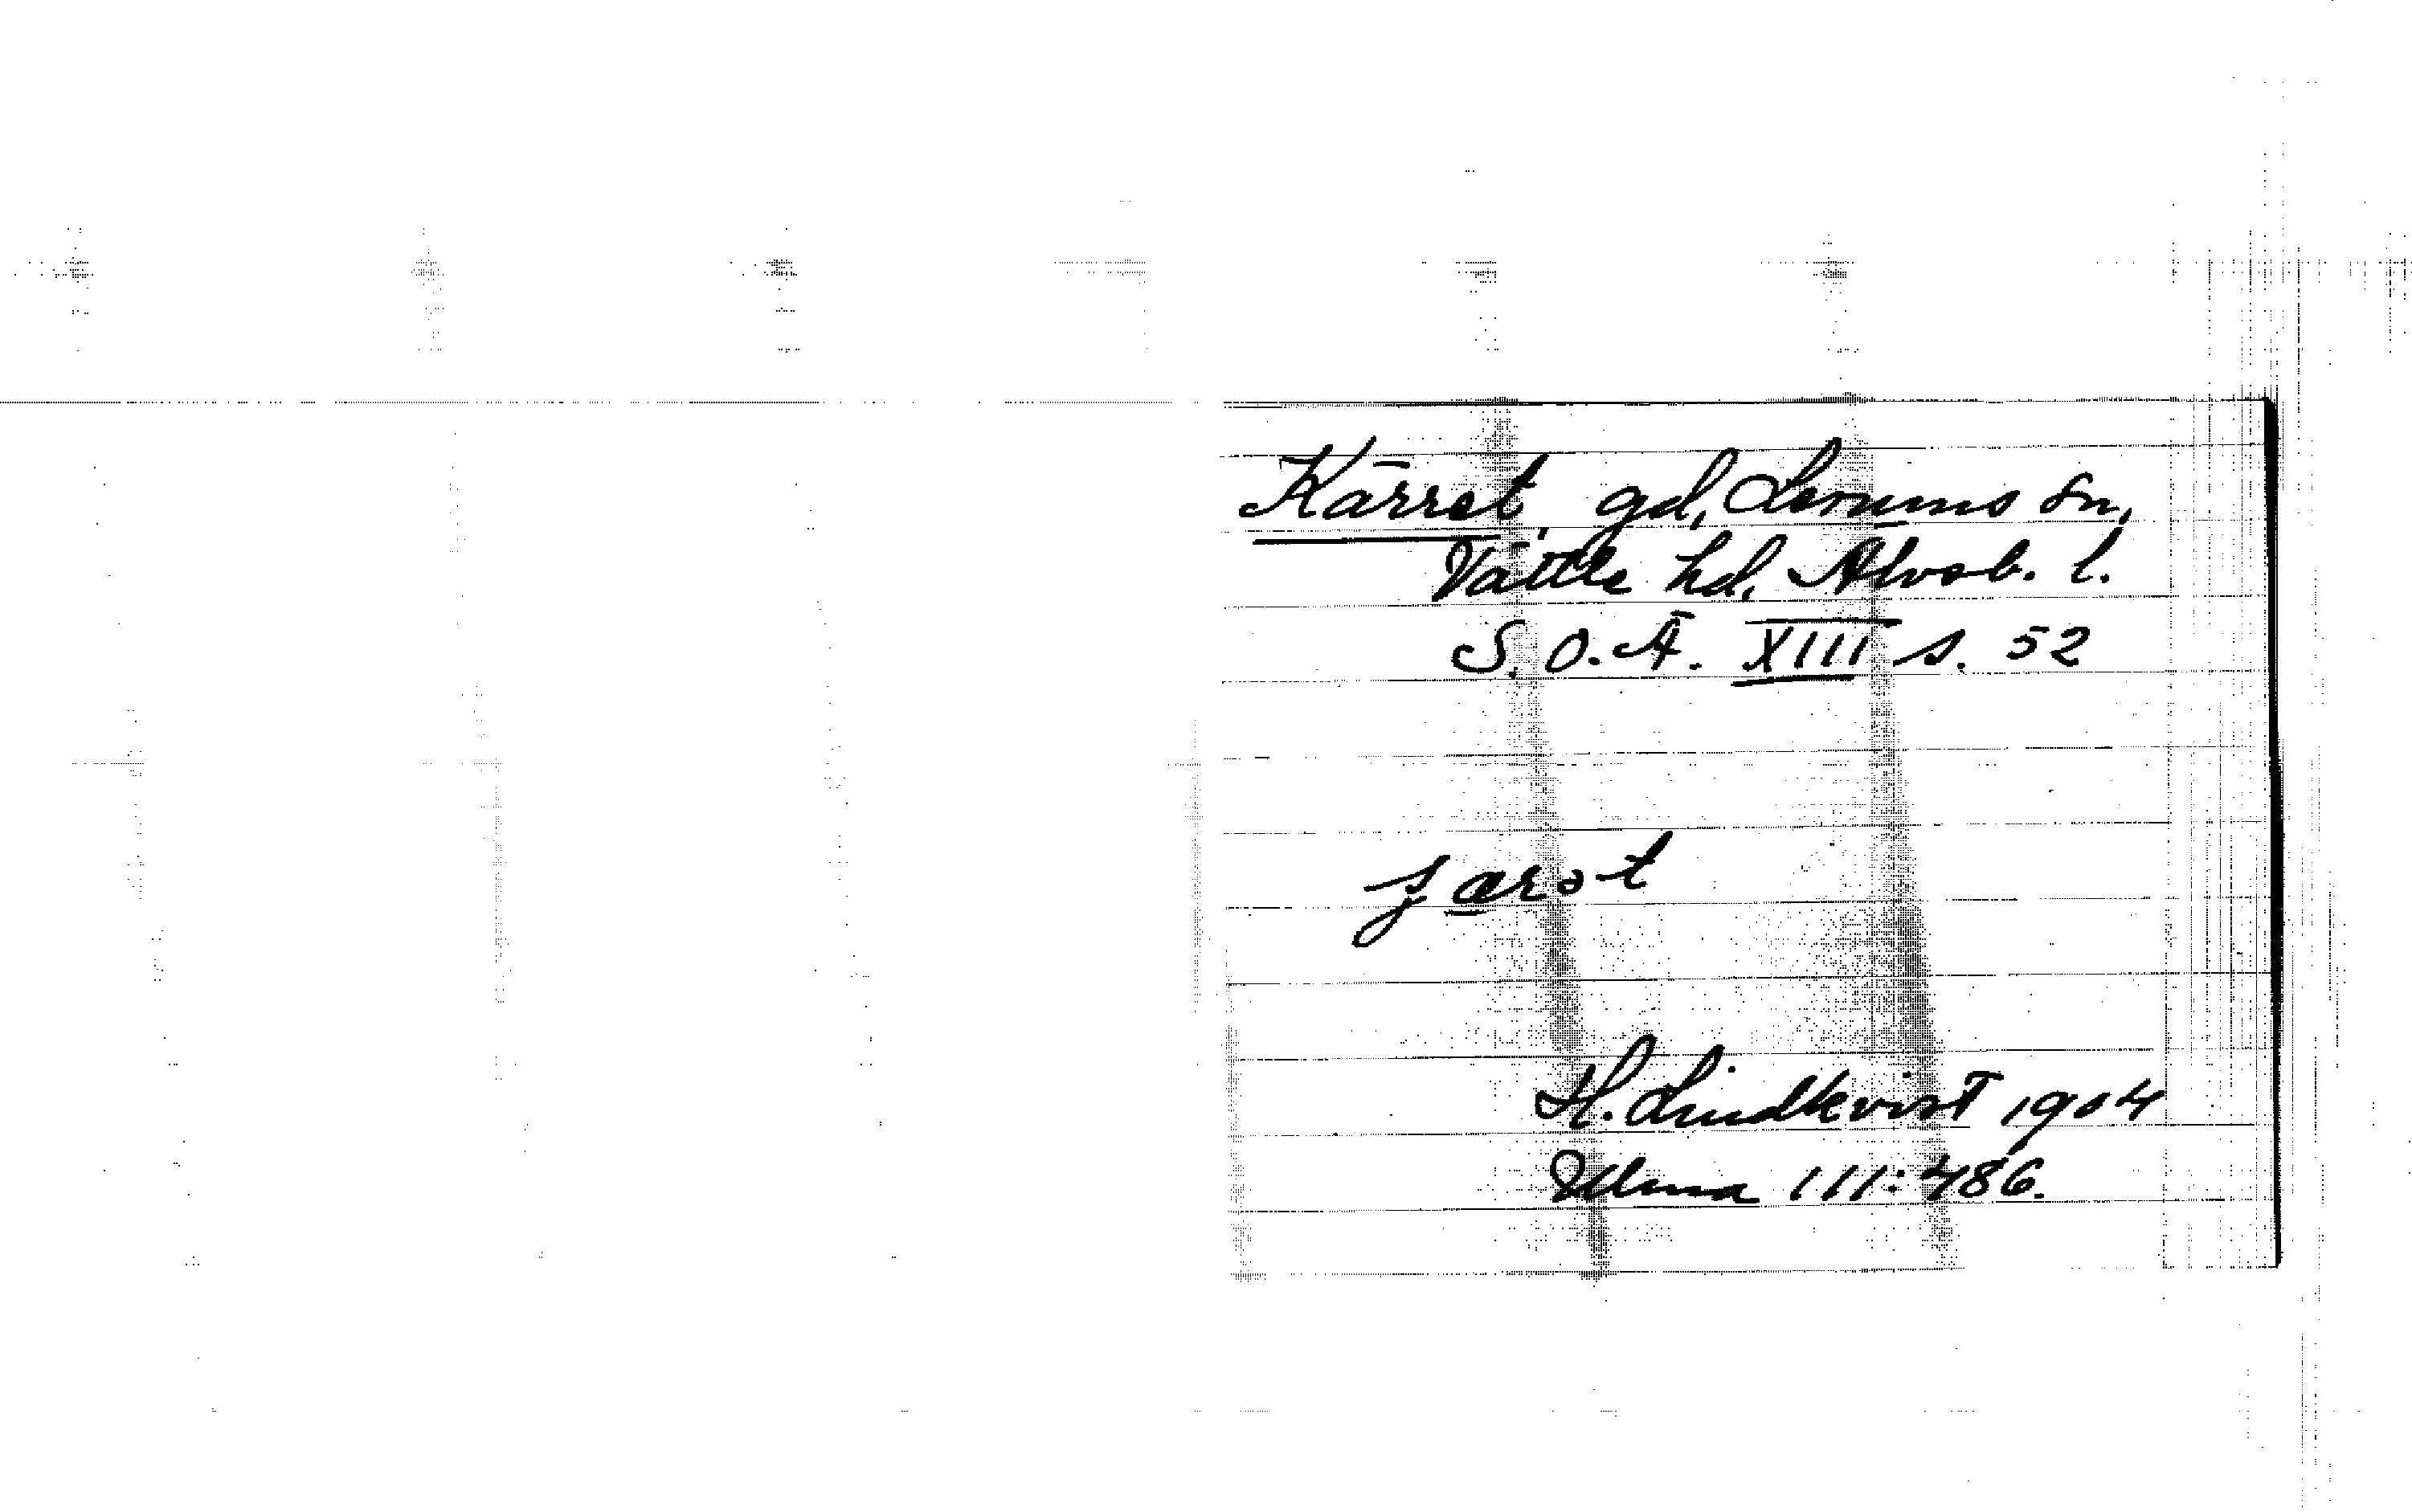 Kärret, gd, Lerums sn,
Vättle hd, Älvsb. l.
S. O. Ä. XIII s. 52
ʃærət
H. Lindkvist 1904
Ulma 111:486.